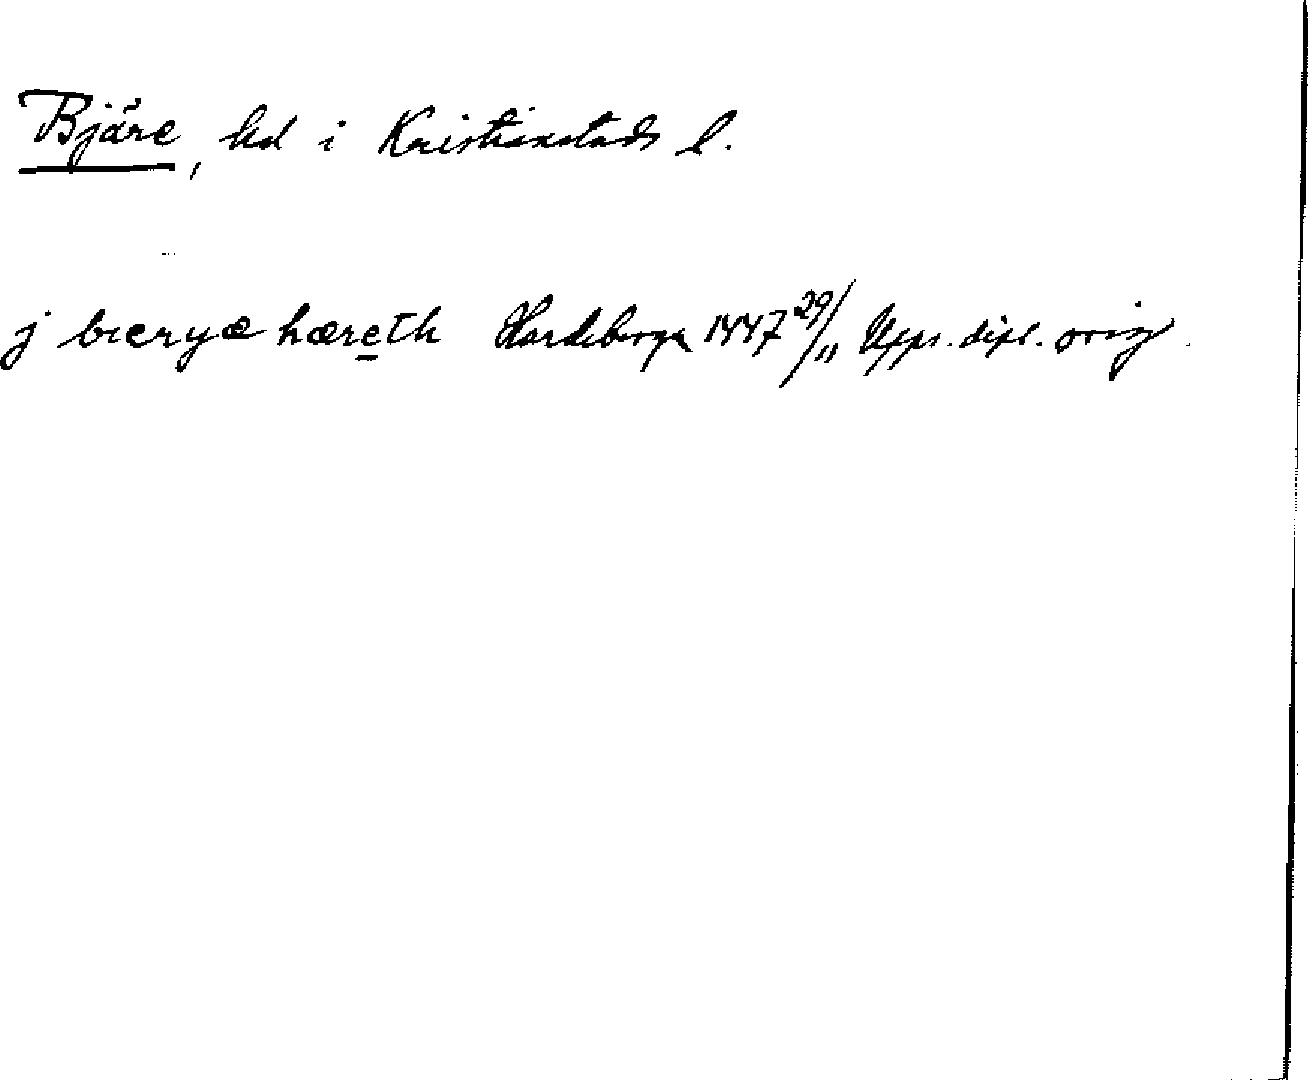 Bjäre, hd i Kristianstads l.
j bieryæ hæreth Hardeberga 1447 29/11 Upps. dipl. orig.